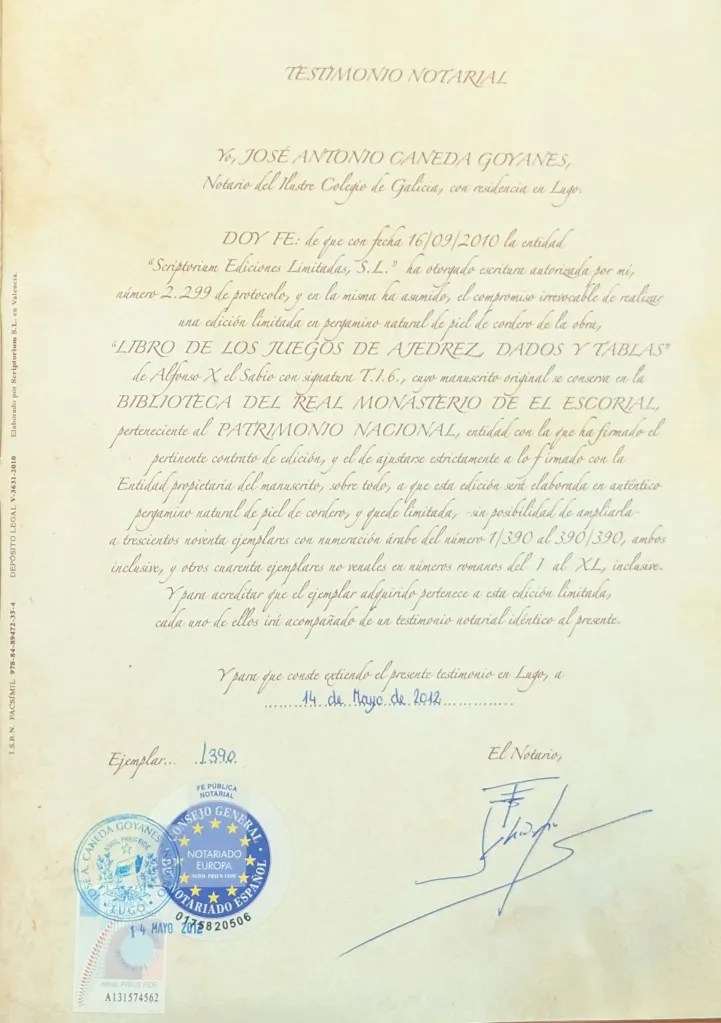 TESTIMONIO NOTARIAL
Yo, JOSÉ ANTONIO CANEDA GOYANES,
Notario del Ilustre Colegio de Galicia, con residencia en Lugo.
DOY FE: de que con fecha 16/09/2010 la entidad
"Scriptorium Ediciones Limitadas, S.L." ha otorgado escritura autorizada por mí,
número 2.299 de protocolo, y en la misma ha asumido, el compromiso irrevocable de realizar
una edición limitada en pergamino natural de piel de cordero de la obra,
"LIBRO DE LOS JUEGOS DE AJEDREZ, DADOS Y TABLAS"
de Alfonso X el Sabio con signatura T.I.6., cuyo manuscrito original se conserva en la
BIBLIOTECA DEL REAL MONASTERIO DE EL ESCORIAL,
perteneciente al PATRIMONIO NACIONAL, entidad con la que ha firmado el
pertinente contrato de edición, y el de ajustarse estrictamente a lo firmado con la
Entidad propietaria del manuscrito, sobre todo, a que esta edición será elaborada en auténtico
pergamino natural de piel de cordero, y quede limitada, -sin posibilidad de ampliarla-
a trescientos noventa ejemplares con numeración árabe del número 1/390 al 390/390, ambos
inclusive, y otros cuarenta ejemplares no venales en números romanos del I al XL, inclusive.
Y para acreditar que el ejemplar adquirido pertenece a esta edición limitada,
cada uno de ellos irá acompañado de un testimonio notarial idéntico al presente.
Y para que conste extiendo el presente testimonio en Lugo, a
14 de Mayo de 2012
Ejemplar... /390.
El Notario,
FE PÚBLICA
NOTARIAL
CONSEJO GENERAL DEL NOTARIADO ESPAÑOL
NOTARIADO
EUROPA
NIHIL PRIUS FIDE
0175820506
JOSE A. CANEDA GOYANES
NIHIL PRIUS FIDE
LUGO
14 MAYO 2012
NIHIL PRIUS FIDE
A131574562
I.S.B.N. FACSÍMIL 978-84-89472-33-4 DEPÓSITO LEGAL V-3631-2010 Elaborado por Scriptorium S.L. en Valencia.